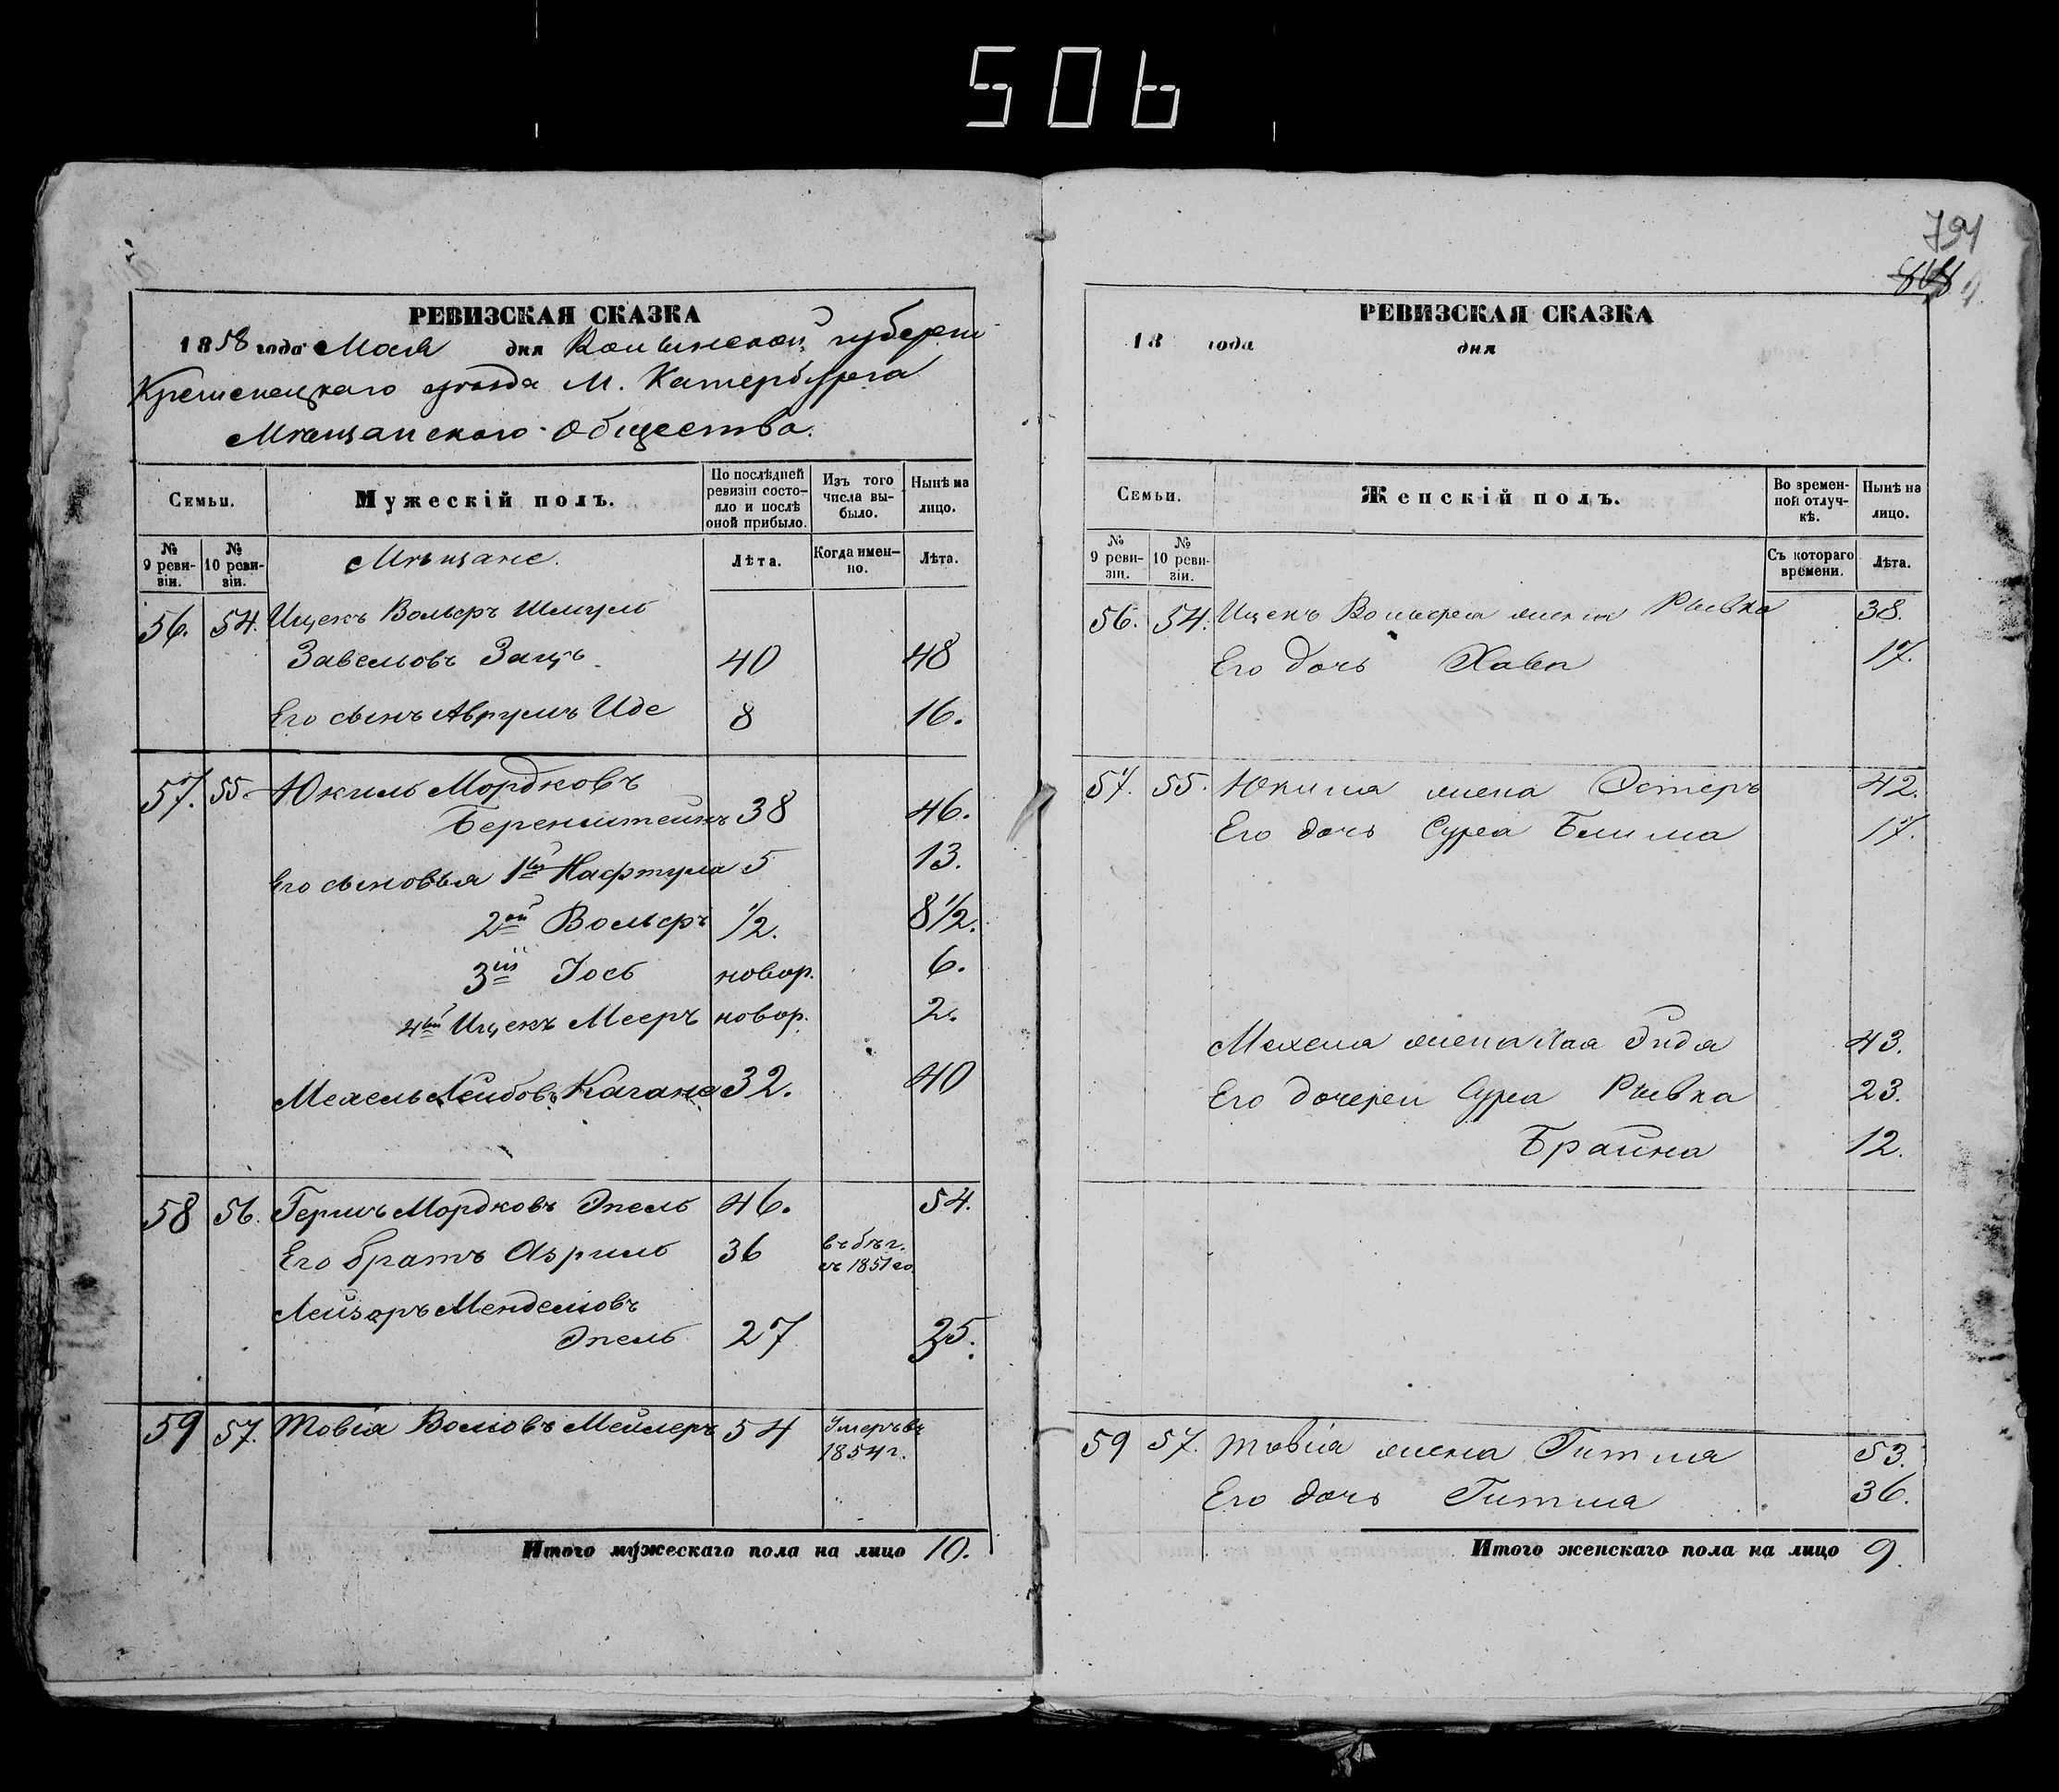 506
791
808
РЕВИЗСКАЯ СКАЗКА
1858 года Мая дня Волынской губерни
Кременецкаго уѣзда М. Катербурга
Мѣщанского Общества.
Семьи.
Мужескій полъ.
По послѣдней ревизіи состояло и послѣ оной прибыло.
Изъ того числа выбыло.
Нынѣ на лицо.
№ 9 ревизіи.
№ 10 ревизіи.
Мѣщане.
Лѣта.
Когда именно.
Лѣта.
56. 54. Ицекъ Вольфъ Шмуль
Завельовъ Зацъ 40 48
Его сынъ Аврумъ Иде 8 16.
57. 55. Юкиль Мордковъ
Беренштейнъ 38 46.
Его сыновья 1й Нафтула 5 13.
2ой Вольфъ 1/2. 8 1/2.
3ій Іось новор. 6.
4ый Ицекъ Мееръ новор. 2.
Мехель Лейбовъ Кагана 32. 40
58 56. Гершъ Мордковъ Эпель 46. 54.
Его братъ Азриль 36 въ бѣг. съ 1851 го.
Лейзоръ Менделіовъ
Эпель 27 35.
59 57. Товіа Волховъ Мейлеръ 54 Умеръ въ 1854 г.
Итого мужескаго пола на лицо 10.
РЕВИЗСКАЯ СКАЗКА
18 года дня
Семьи.
Женскій полъ.
Во временной отлучкѣ.
Нынѣ на лицо.
№ 9 ревизіи.
№ 10 ревизіи.
Съ котораго времени.
Лѣта.
56. 54. Ицекъ Вольфа жена Рывка 38.
Его дочь Хава 17.
57. 55. Юкила жена Эстеръ 42.
Его дочь Сура Блима 17.
Мехела жена Хая Эидя 43.
Его дочереи Сура Рывка 23.
Брайна 12.
59 57. Товіа жена Гитля 53.
Его дочь Гитля 36.
Итого женскаго пола на лицо 9.